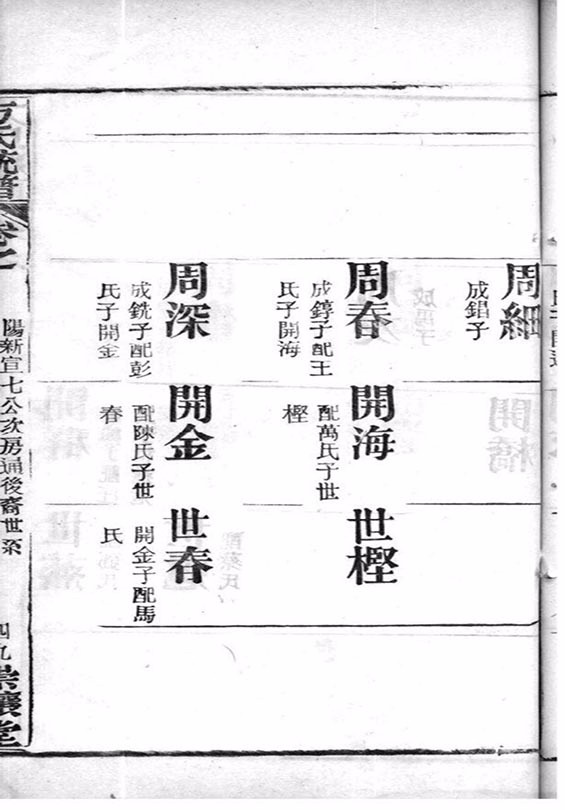 周細
成錩子
周春
成錞子配王
氏子開海
開海
配萬氏子世
樫
世樫
周深
成銑子配彭
氏子開金
開金
配陳氏子世
春
世春
開金子配馬
氏
氏統譜
卷之
陽新宣七公次房通後裔世系
四九
堂